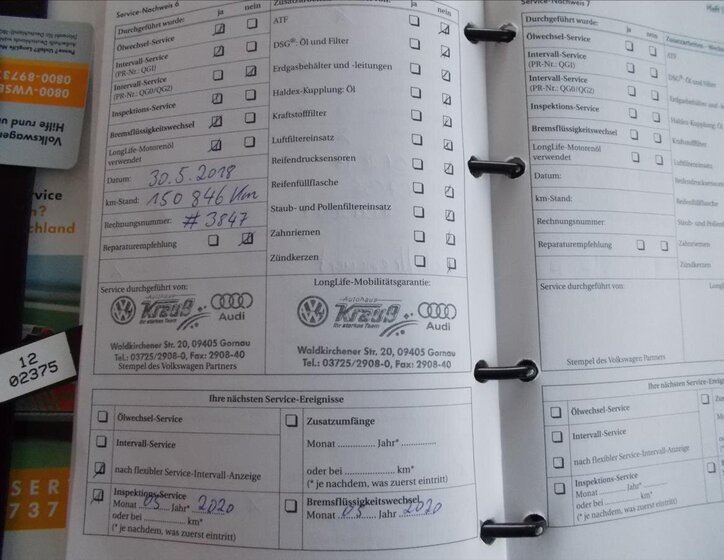 Service-Nachweis 6
Durchgeführt wurde:
ja
nein
Ölwechsel-Service
Intervall-Service
(PR-Nr.: QGI)
Intervall-Service
(PR-Nr.: QG0/QG2)
Inspektions-Service
Bremsflüssigkeitswechsel
LongLife-Motorenöl
verwendet
Datum: 30.5.2018
km-Stand: 150 846 Km
Rechnungsnummer: #3847
Reparaturempfehlung
ja
nein
ATF
DSG®-Öl und Filter
Erdgasbehälter und -leitungen
Haldex-Kupplung: Öl
Kraftstofffilter
Luftfiltereinsatz
Reifendrucksensoren
Reifenfüllflasche
Staub- und Pollenfiltereinsatz
Zahnriemen
Zündkerzen
Service durchgeführt von:
Autohaus
Krauß
Ihr starkes Team
Audi
Waldkirchener Str. 20, 09405 Gornau
Tel.: 03725/2908-0, Fax: 2908-40
Stempel des Volkswagen Partners
LongLife-Mobilitätsgarantie:
Autohaus
Krauß
Ihr starkes Team
Audi
Waldkirchener Str. 20, 09405 Gornau
Tel.: 03725/2908-0, Fax: 2908-40
Ihre nächsten Service-Ereignisse
Ölwechsel-Service
Intervall-Service
nach flexibler Service-Intervall-Anzeige
Inspektions-Service
Monat 05 Jahr* 2020
oder bei ............ km*
(* je nachdem, was zuerst eintritt)
Zusatzumfänge
Monat ............ Jahr* ............
oder bei ............ km*
(* je nachdem, was zuerst eintritt)
Bremsflüssigkeitswechsel
Monat 05 Jahr 2020
Service-Nachweis 7
Durchgeführt wurde:
ja
nein
Ölwechsel-Service
Intervall-Service
(PR-Nr.: QGI)
Intervall-Service
(PR-Nr.: QG0/QG2)
Inspektions-Service
Bremsflüssigkeitswechsel
LongLife-Motorenöl
verwendet
Datum:
km-Stand:
Rechnungsnummer:
Reparaturempfehlung
ATF
DSG®-Öl und Filter
Erdgasbehälter und
Haldex-Kupplung
Kraftstofffilter
Luftfiltereinsatz
Reifendrucksensoren
Reifenfüllflasche
Staub- und Pollen
Zahnriemen
Zündkerzen
Service durchgeführt von:
Stempel des Volkswagen Partners
Ihre nächsten Service-Ereignisse
Ölwechsel-Service
Intervall-Service
nach flexibler Service-Intervall-Anzeige
Inspektions-Service
Monat ............ Jahr* ............
oder bei ............ km*
(* je nachdem, was zuerst eintritt)
0800-VWSE
0800-8973
Volkswagen
Hilfe rund um
12
02375